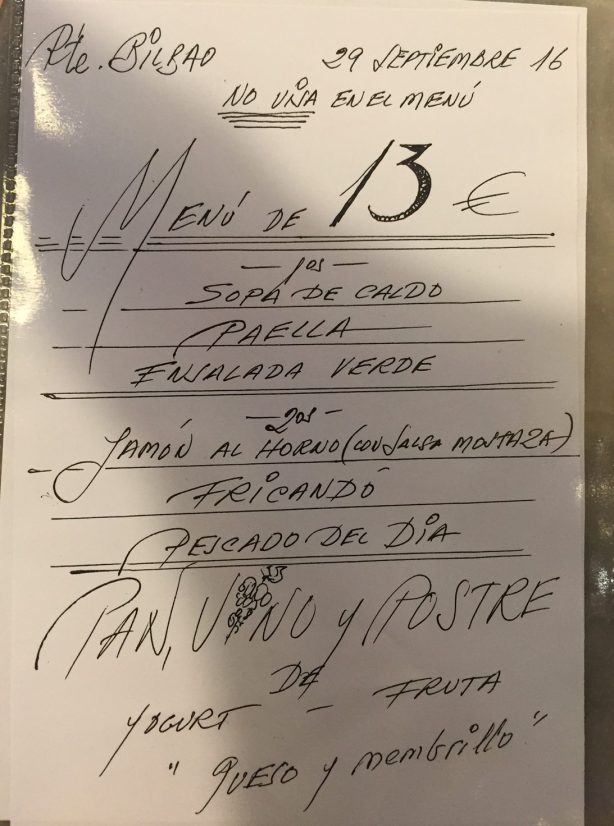 Rte. BILBAO 29 SEPTIEMBRE 16
NO VISA EN EL MENÚ
MENÚ DE 13 €
- 1os -
SOPA DE CALDO
PAELLA
ENSALADA VERDE
- 2os -
JAMÓN AL HORNO (CON SALSA MOSTAZA)
FRICANDÓ
PESCADO DEL DIA
PAN, VINO y POSTRE
DE
YOGURT - FRUTA
"QUESO y membrillo"